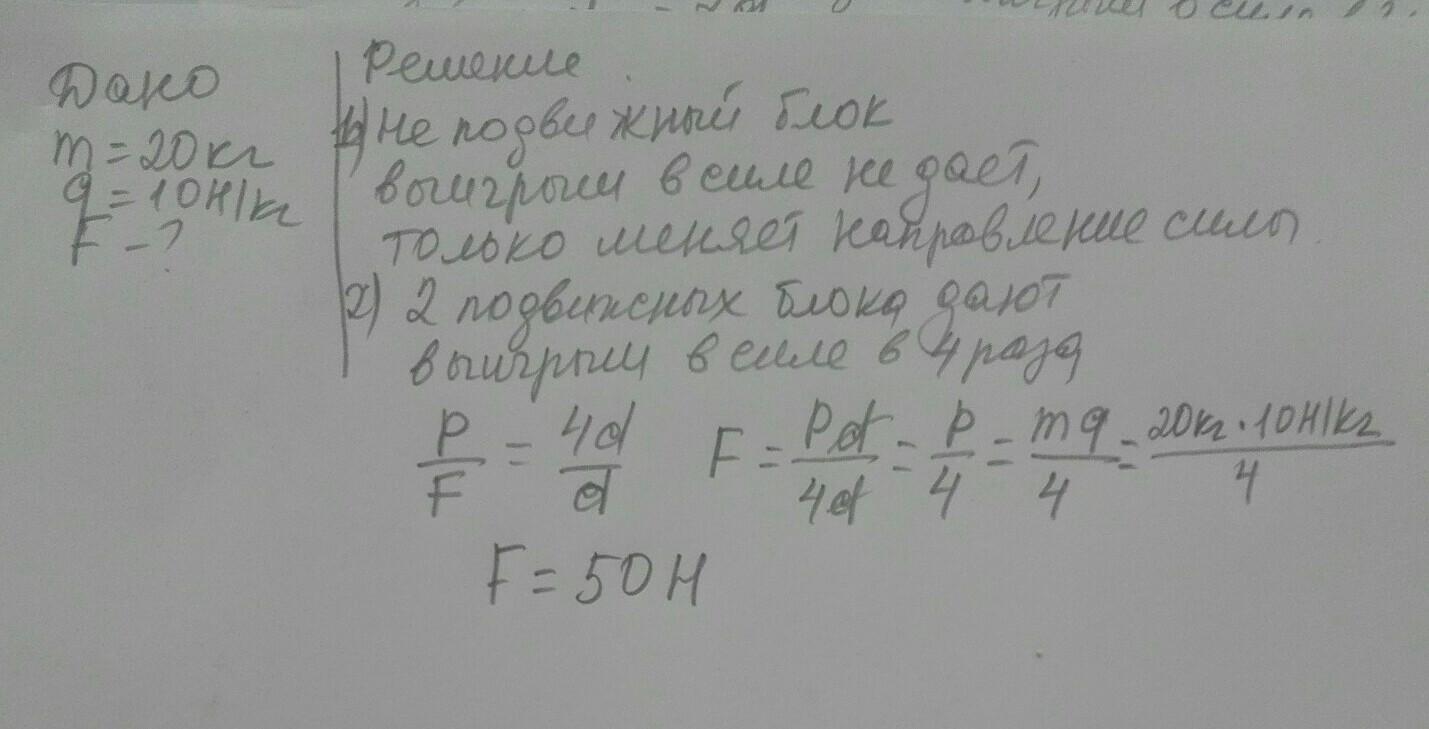 в силе
Дано
m = 20 кг
g = 10 Н/кг
F - ?
Решение.
1) Не подвижный блок
выигрыш в силе не дает,
только меняет направление силы.
2) 2 подвижных блока дают
выигрыш в силе в 4 раза
P/F = 4d/d F = Pd/4d = P/4 = mg/4 = 20кг · 10Н/кг/4
F = 50 Н